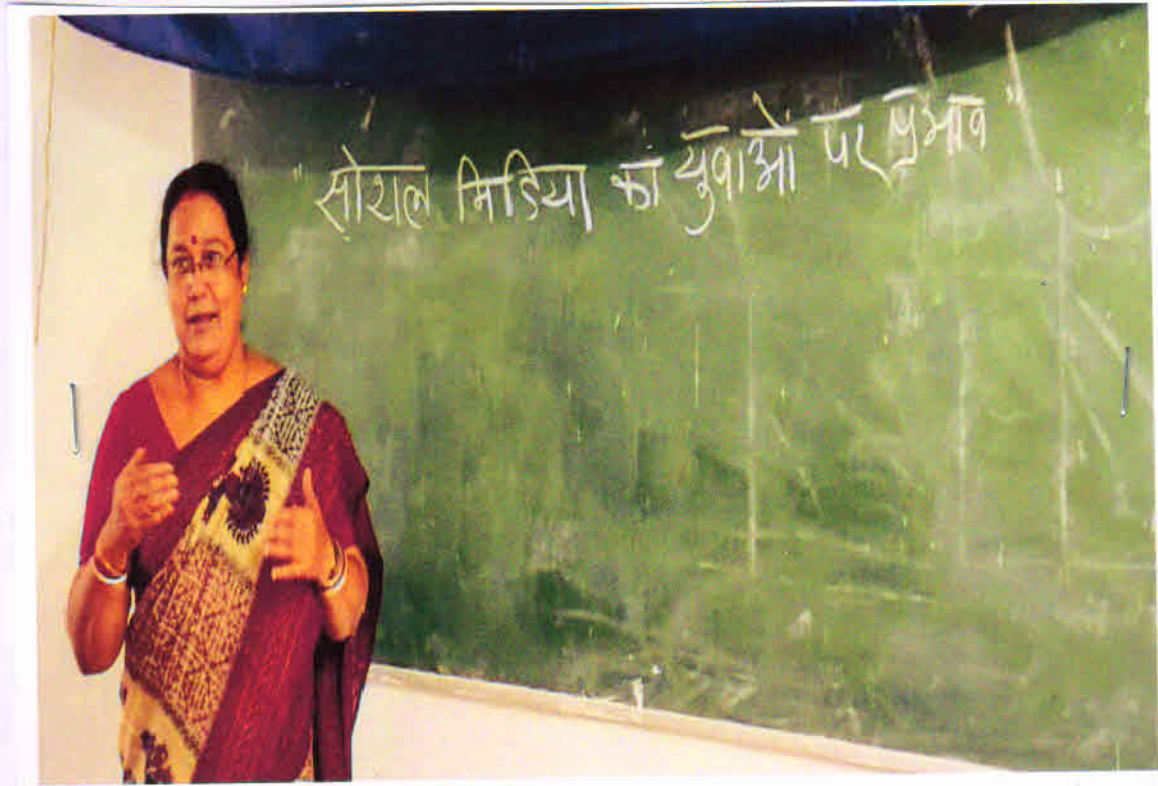 "सोशल मिडिया का युवाओं पर प्रभाव"